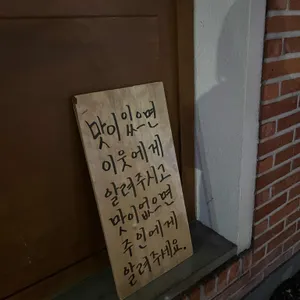 맛이있으면
이웃에게
알려주시고
맛이없으면
주인에게
알려주세요.